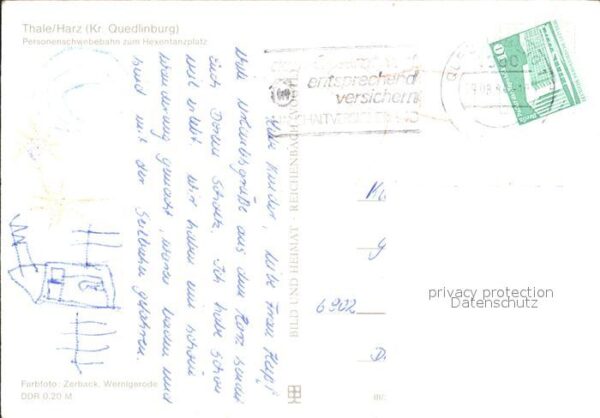 Thale/Harz (Kr. Quedlinburg)
Personenschwebebahn zum Hexentanzplatz
entsprechend
versichern
Liebe Kinder, liebe Frau
Urlaubsgrüße aus dem Harz sendet
Euch Doreen Ich habe schon
viel erlebt. Wir haben eine schöne
Wanderung gemacht, waren baden und
sind mit der Seilbahn gefahren.
BILD UND HEIMAT REICHENBACH
6902
privacy protection
Datenschutz
Farbfoto: Zerback, Wernigerode
DDR 0,20 M